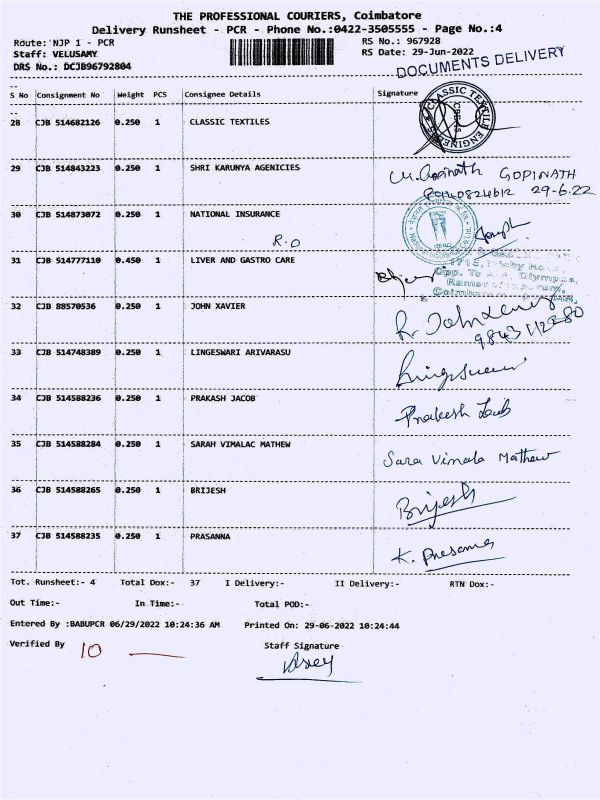 THE PROFESSIONAL COURIERS, Coimbatore
Delivery Runsheet - PCR - Phone No.:0422-3505555 - Page No.:4
Route: NJP 1 - PCR RS No.: 967928
Staff: VELUSAMY RS Date: 29-Jun-2022
DRS No.: DCJB96792804 DOCUMENTS DELIVERY
S No Consignment No Weight PCS Consignee Details Signature
28 CJB 514682126 0.250 1 CLASSIC TEXTILES
29 CJB 514843223 0.250 1 SHRI KARUNYA AGENICIES M. Gopinath GOPINATH
29-6.22
30 CJB 514873072 0.250 1 NATIONAL INSURANCE
R.O
31 CJB 514777110 0.450 1 LIVER AND GASTRO CARE
32 CJB 88570536 0.250 1 JOHN XAVIER
33 CJB 514748389 0.250 1 LINGESWARI ARIVARASU
34 CJB 514588236 0.250 1 PRAKASH JACOB Prakesh Jacob
35 CJB 514588284 0.250 1 SARAH VIMALAC MATHEW Sara Vimala Mathew
36 CJB 514588265 0.250 1 BRIJESH Brijesh
37 CJB 514588235 0.250 1 PRASANNA K. Prasanna
Tot. Runsheet:- 4 Total Dox:- 37 I Delivery:- II Delivery:- RTN Dox:-
Out Time:- In Time:- Total POD:-
Entered By :BABUPCR 06/29/2022 10:24:36 AM Printed On: 29-06-2022 10:24:44
Verified By 10 Staff Signature